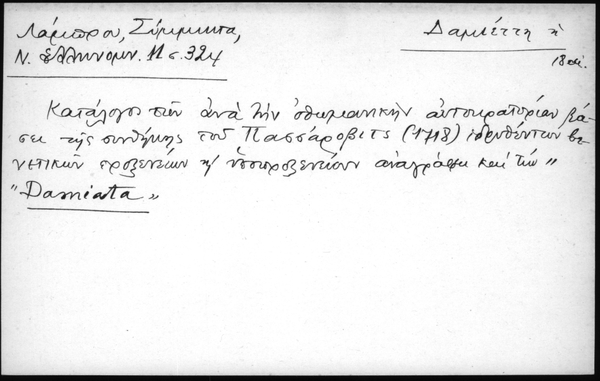 Λάμπρου, Σύμμικτα,
Ν. Ελληνομν. 11 σ. 324
Δαμιέττη ἡ
18 αἰ.
Κατάλογος τῶν ἀνὰ τὴν ὀθωμανικὴν αὐτοκρατορίαν βά-
σει τῆς συνθήκης τοῦ Πασσάροβιτς (1718) ἱδρυθέντων βε-
νετικῶν προξενείων κ' ὑποπροξενείων ἀναγράφει καὶ τὴν "
"Damiata"